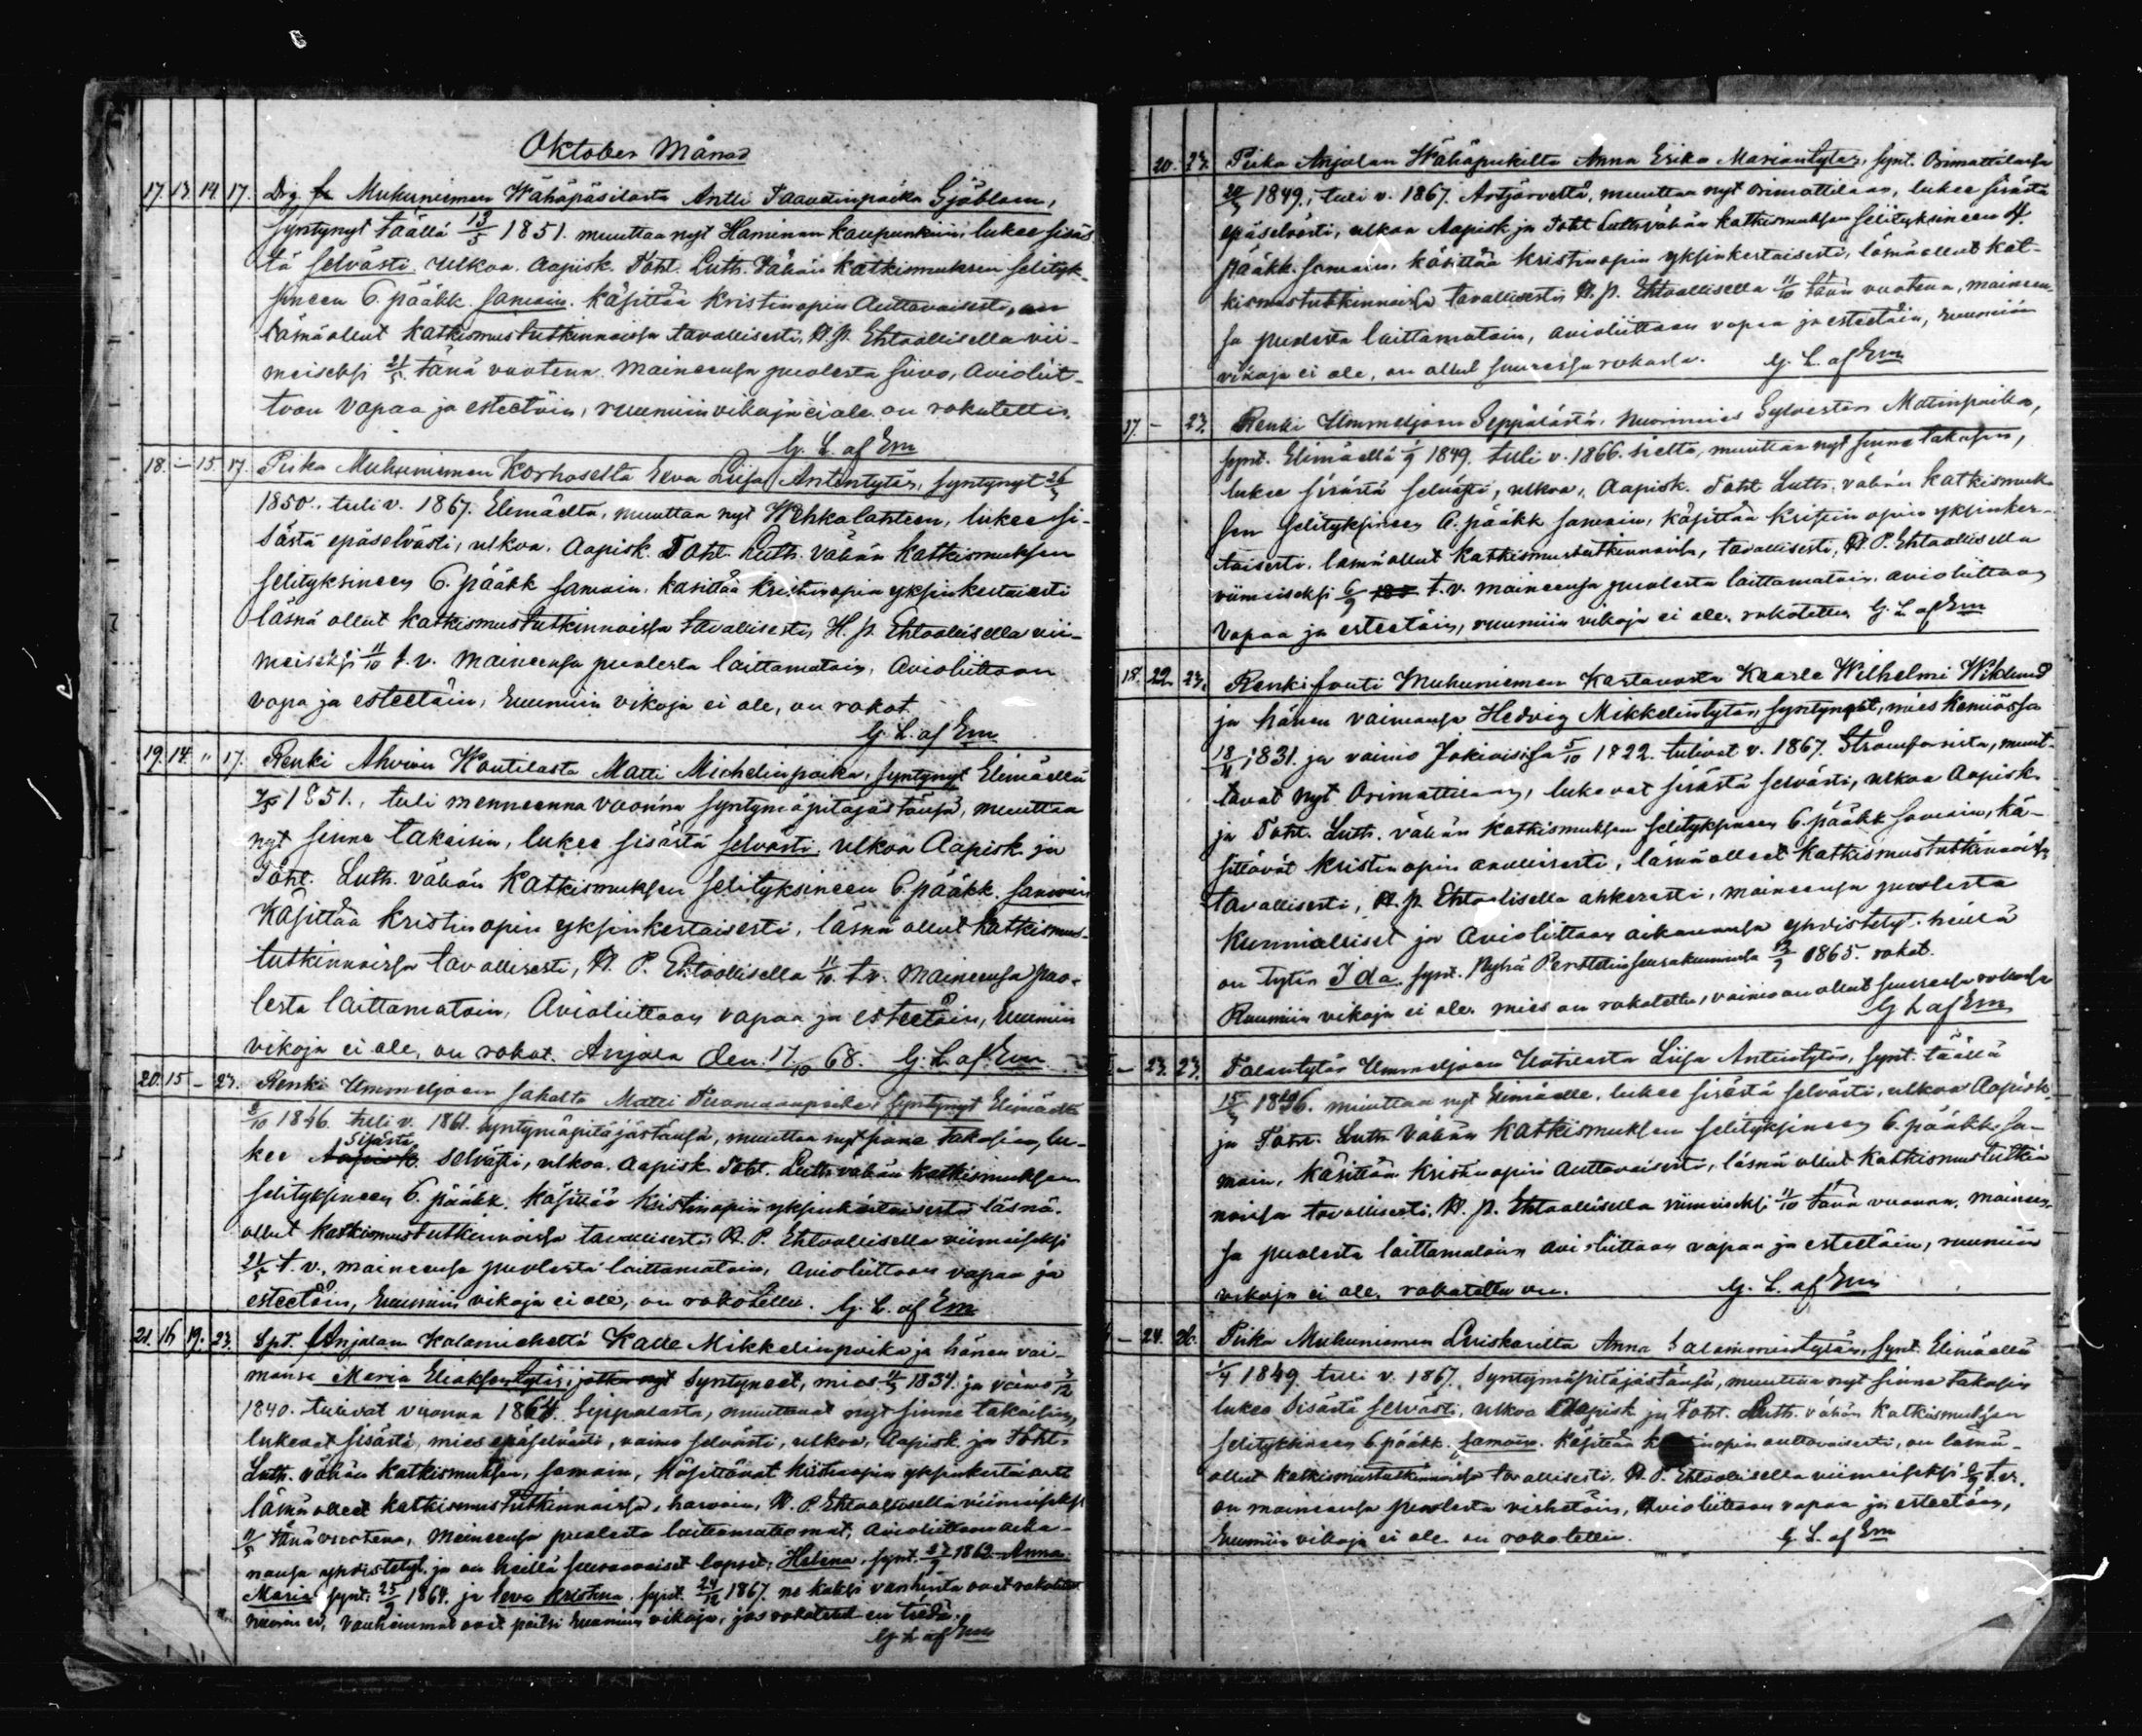 Oktober Månad
17. 13. 14. 17. Drg. Muhuniemen Wähäpäsilästä Antti Taavetinpoika Sjöblom,
syntynyt täällä 13/5 1851. muuttaa nyt Haminan kaupunkiin, lukee sisäs
tä selvästi. ulkoa. Aapisk. Toht. Luth. Vähän Katkismuksen selityk
sineen 6. pääkk. samoin. Käsittää Kristinopin Auttavaisesti, on
läsnäollut Katkismustutkinnoissa tavallisesti, H. p. Ehtoollisella vii-
meiseksi 21/5 tänä vuotena. Maineensa puolesta siivo, Avioliit-
toon Vapaa ja esteetöin, ruumiin vikoja ei ole. on rokotettu.
G. L. af Em
18. – 15. 17. Piika Muhuniemen Korhoselta Eeva Liisa Antintytär, syntynyt 26/5
1850. tuli v. 1867. Elimäeltä, muuttaa nyt Wehkalahteen, lukee si-
sästä epäselvästi, ulkoa. Aapisk. Toht. Luth. Vähän Katkismuksen
selityksineen 6. pääkk samoin. käsittää Kristinopin yksinkertaisesti
läsnä ollut katkismustutkinnoissa tavallisesti, H. p. Ehtoollisella vii-
meiseksi 11/10 t. v. Maineensa puolesta laittamatoin, Avioliittoon
vapa ja esteetöin, ruumiin vikoja ei ole, on rokot.
G. L. af Em
19. 14. " 17. Renki Ahvion Koutilasta Matti Michelinpoika, syntynyt Elimäellä
1851., tuli menneenna vuonna syntymäpitäjästänsä, muuttaa
nyt sinne takaisin, lukee sisästä selvästi, ulkoa Aapisk. ja
Toht. Luth. vähän Katkismuksen selityksineen 6. pääkk. samoin
Käsittää Kristinopin yksinkertaisesti, läsnä ollut Katkismus-
tutkinnoissa tavallisesti, H. P. Ehtoollisella 11/10 t. v. Maineensa puo-
lesta laittamatoin, Avioliittoon vapaa ja esteetöin, ruumiin
vikoja ei ole, on rokot. Anjala den 17/10 68. G. L. af Em
20. 15 – 23. Renki Ummeljoen sahalta Matti Tuomaanpoika syntynyt Elimäellä
1846. tuli v. 1861. syntymäpitäjästänsä, muuttaa nyt sinne takasin, lu-
kee sisästä selvästi, ulkoa. Aapisk. Toht. Luth. vähän katkismuksen
selityksineen 6. pääkk. Käsittää Kristinopin yksinkertaisesti läsnä.
ollut Katkismustutkinnoissa tavallisesti H. P. Ehtoollisella viimeiseksi
21/5 t. v., maineensa puolesta laittamatoin, Avioliittoon vapaa ja
esteetöin, ruumiin vikoja ei ole, on rokotettu. G. L. af Em
21. 16 19. 23. Spt. Anjalan Kalamiehettä Kalle Mikkelinpoika ja hänen vai-
monsa Maria Eliaksentytär, syntyneet, mies 1834. ja vaimo
1840. tulivat vuonna 1864. Sippolasta, muuttavat nyt sinne takaisin,
lukevat sisästä, mies epäselvästi, vaimo selvästi, ulkoa, Aapisk. ja Toht.
Luth. vähän Katkismuksen, samoin, Käsittävät Kristinopin yksinkertaisesti
läsnä olleet katkismustutkinnoissa, harvoin, H. P. Ehtoollisella viimeiseksi
tänä vuotena, Maineensa puolesta laittamattomat, Avioliittoon aika-
nansa yhdistetyt, ja on heillä seuraavaiset lapset, Helena, synt. 1862. Anna
Maria synt. 25/2 1864. ja Eeva Kristina, synt. 24/12 1867. ne kaksi vanhinta ovat rokotetut
nuorin ei, Vanhemmat ovat paitsi ruumiin vikoja, jos rokotetut en tiedä.
G. L. af Em
20. 23. Piika Anjalan Wähäpukilta Anna Erika Mariantytär, synt. Orimattilassa
1849., tuli v. 1867. Artjärveltä, muuttaa nyt Orimattilaan, lukee sisästä
epäselvästi, ulkoa Aapisk. ja Toht Luth vähän Katkismuksen selityksineen 4.
pääkk. samoin. käsittää Kristinopin yksinkertaisesti, läsnäollut Kat-
kismustutkinnoissa tavallisesti H. p. Ehtoollisella 11/10 tänä vuotena, maineen-
sa puolesta laittamatoin, avioliittoon vapaa ja esteetöin, ruumiin
vikoja ei ole, on ollut suuressa rokossa. G. L. af Em
17. – 23. Renki Ummeljoen Seppälästä, nuorimies Sylvester Matinpoika,
synt. Elimäellä 1849. tuli v. 1866. sieltä, muuttaa nyt sinne takasin,
lukee sisästä selvästi, ulkoa, Aapisk. Toht Luth. vähän Katkismuk-
sen selityksineen 6. pääkk samoin, Käsittää Kristin opin yksinker-
taisesti. läsnäollut Katkismustutkinnoissa, tavallisesti, H. P. Ehtoollisella
viimeiseksi 6/9 t. v. maineensa puolesta laittamatoin. avioliittoon
Vapaa ja esteetöin, ruumiin vikoja ei ole. rokotettu G. L. af Em
18. 22. 23. Renkifouti Muhuniemen Kartanosta Kaarle Wilhelmi Wiklund
ja hänen vaimonsa Hedvig Mikkelintytär, syntyneet, mies Kemiössä
18/11 1831. ja vaimo Jokioisissa 5/10 1822. tulivat v. 1867. Strömforsista, muut-
tavat nyt Orimattilaan, lukevat sisästä selvästi, ulkoa Aapisk.
ja Toht. Luth. vähän Katkismuksen selityksineen 6. pääkk samoin, kä-
sittävät Kristinopin avullisesti, läsnäolleet Katkismustutkinnoissa
tavallisesti, H. p. Ehtoollisella ahkerasti, maineensa puolesta
kunnialliset ja Avioliittoon aikanansa yhdistetyt. heillä
on tytär Ida. synt. Pyhä Perttelin seurakunnassa 1865. rokot.
Ruumiin vikoja ei ole. mies on rokotettu, vaimo on ollut suuressa rokossa
G L af Em
– 23. 23. Talontytär Ummeljoen Uotilasta Liisa Antintytär, synt. täällä
muuttaa nyt Elimäelle, lukee sisästä selvästi, ulkoa Aapisk.
ja Toht. Luth. Vähän Katkismuksen selityksineen 6. pääkk. sa-
moin, Käsittää Kristinopin Auttavaisesti, läsnä ollut Katkismustutkin
noissa tavallisesti, H. p. Ehtoollisella viimeiseksi 11/10 tänä vuonna. maineen-
sa puolesta laittamatoin, avioliittoon vapaa ja esteetöin, ruumiin
vikoja ei ole. rokotettu on. G. L. af Em
– 24. 26. Piika Muhuniemen Anna Salamonintytär, synt. Elimäellä
1849. tuli v. 1867. Syntymäpitäjästänsä, muuttaa nyt sinne takasin
lukee Sisästä selvästi, ulkoa Aapisk. ja Toht. Luth. vähän Katkismuksen
selityksineen 6. pääkk. samoin. Käsittää auttavaisesti, on läsnä-
ollut Katkismustutkinnoissa tavallisesti. H. P. Ehtoollisella viimeiseksi t. v.
on maineensa puolesta virhetöin, Avioliittoon vapaa ja esteetöin,
ruumiin vikoja ei ole on rokotettu. G. L. af Em